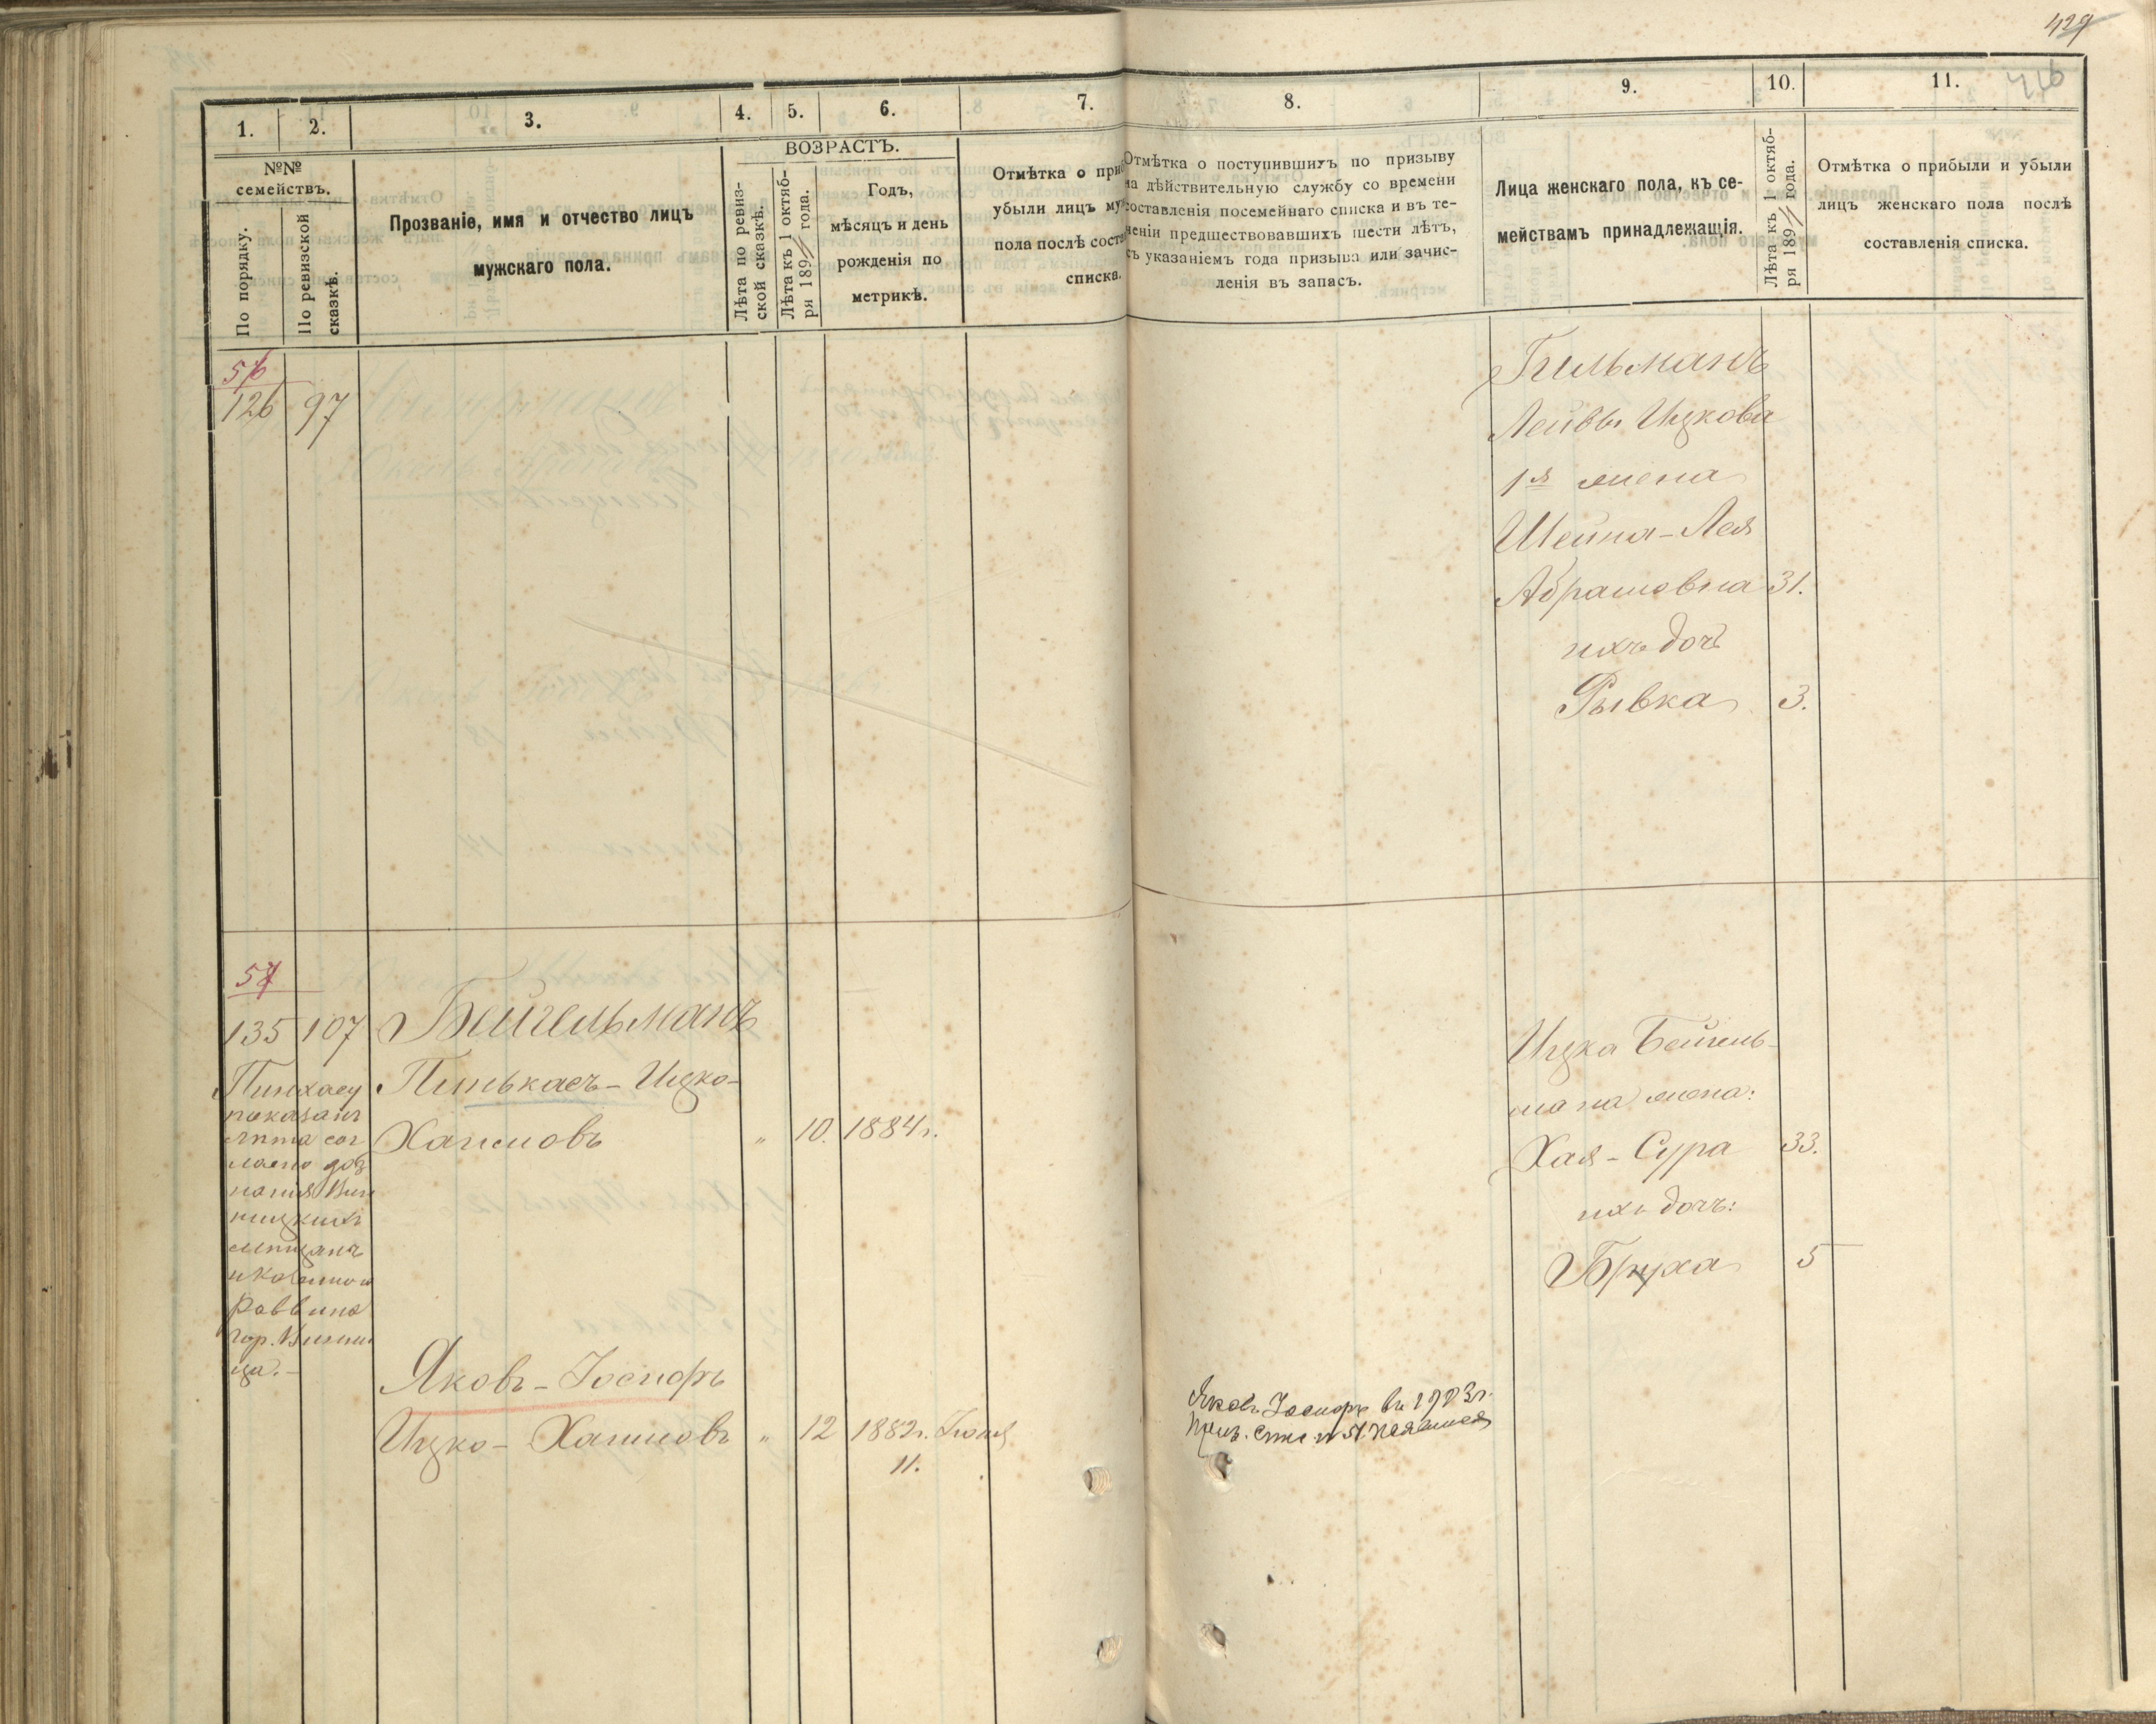 429
416
1.
2.
3.
4.
5.
6.
7.
8.
9.
10.
11.
№№
семействъ.
По порядку.
По ревизской
сказкѣ.
Прозваніе, имя и отчество лицъ
мужскаго пола.
ВОЗРАСТЪ.
Лѣта по ревиз-
ской сказкѣ.
Лѣта къ 1 октяб-
ря 189 года.
Годъ,
мѣсяцъ и день
рожденія по
метрикѣ.
Отмѣтка о
убыли лицъ
пола послѣ
списка.
Отмѣтка о поступившихъ по призыву
на дѣйствительную службу со времени
составленія посемейнаго списка и въ те-
ченіи предшествовавшихъ шести лѣтъ,
съ указаніемъ года призыва или зачис-
ленія въ запасъ.
Лица женскаго пола, къ се-
мействамъ принадлежащія.
Лѣта къ 1 октяб-
ря 189 года.
Отмѣтка о прибыли и убыли
лицъ женскаго пола послѣ
составленія списка.
56
126 97
Лейвы Ицкова
1я жена
Шейна-Лея
Абрамовна 31.
ихъ дочь
Рывка 3.
57
135 107 Бейгельманъ
Пинькасъ-Ицко-
Хаимовъ " 10. 1884 г.
Пинхасу
показанъ
лѣта сог
ласно доз
нанія Вин
ницкихъ
мѣщанъ
и Казеннаго
Раввина
гор. Винни
ца.-
Яковъ-Іосифъ
Ицко-Хаимовъ " 12 1882 г. Іюля
11.
Яковъ Іосифъ въ 1903 г.
Ицка Бейгель-
мана жена:
Хая-Сура 33.
ихъ дочь:
Бруха 5